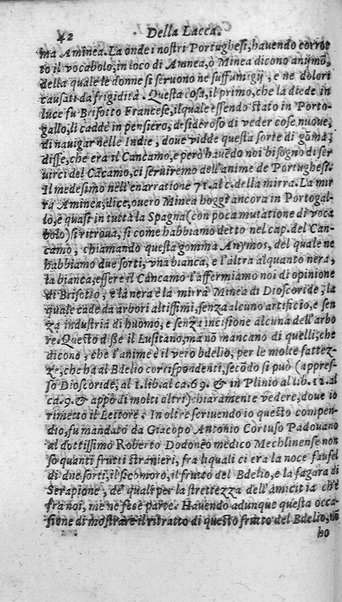 42 Della Lacca.
ma Aminea. La onde i nostri Portughesi, hauendo corrot
to il vocabolo, in loco di Amnea, ò Minea dicono anymo,
della quale le donne si seruono ne suffumigÿ, e ne dolori
causati da frigidità. Questa cosa, il primo, che la diede in
luce fu Brisotto Francese, il quale essendo stato in Porto-
gallo, li caddè in pensiero, desideroso di veder cose nuoue,
di nauigar nelle Indie, doue vidde questa sorte di gōma;
disse, che era il Cancamo, e però hauēdo noi bisogno di ser
uirci del Cācamo, ci seruiremo dell'anime de Portughesi.
Il medesimo nell'enarratione 71. al c. della mirra. La mir
ra Aminea; dice, ouero Minea hoggi ancora in Portogal-
lo, e quasi in tutta la Spagna (con poca mutatione di voca
bolo) si ritroua, si come habbiamo detto nel cap. del Can-
camo, chiamando questa gomma Anymos, del quale ne
habbiamo due sorti, vna bianca, e l'altra alquanto nera,
la bianca; essere il Cancamo l'affermiamo noi di opinione
di Brisotto, e la nera è la mirra Minea di Dioscoride, la
quale cade da arbori altissimi, senza alcuno artificio, e sen
za industria di huomo, e senza incisione alcuna dell'arbo
re. Questo disse il Lusitano; ma nò mancano di quelli; che
dicono, che l'anime è il vero bdelio, per le molte fattez-
ze, che hà al Bdelio corrispondenti, secōdo si può (appres-
so Dioscoride, al 1. lib. al ca. 69. & in Plinio al lib. 12. al
ca. 9. & appo di molti altri) chiaramente vedere, doue io
rimetto il Lettore; In oltre scriuendo io questo compen-
dio, fu mandato da Giacopo Antonio Cortuso Padouano
al dottissimo Roberto Dodonèo medico Mechlinense non
so quanti frutti stranieri, fra li quali ci era la noce faufel
di due sorti, il sicomoro, il frutto del Bdelio, e la fagara di
Serapione, de' quali per la strettezza dell'amicitia ch'è
fra noi, me ne fece parte. Hauendo adunque questa occa-
sione di mostrare il ritratto di questo frutto del Bdelio, nò
ho